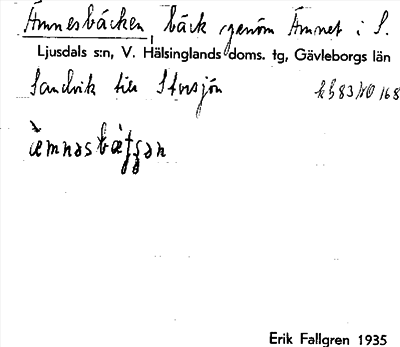 Ämnesbäcken, bäck genom Ämnet i S.
Ljusdals s:n, V. Hälsinglands doms. tg, Gävleborgs län
Sandvik till Storsjön
æ̀mnəsbæ̀tʃən
Erik Fallgren 1935